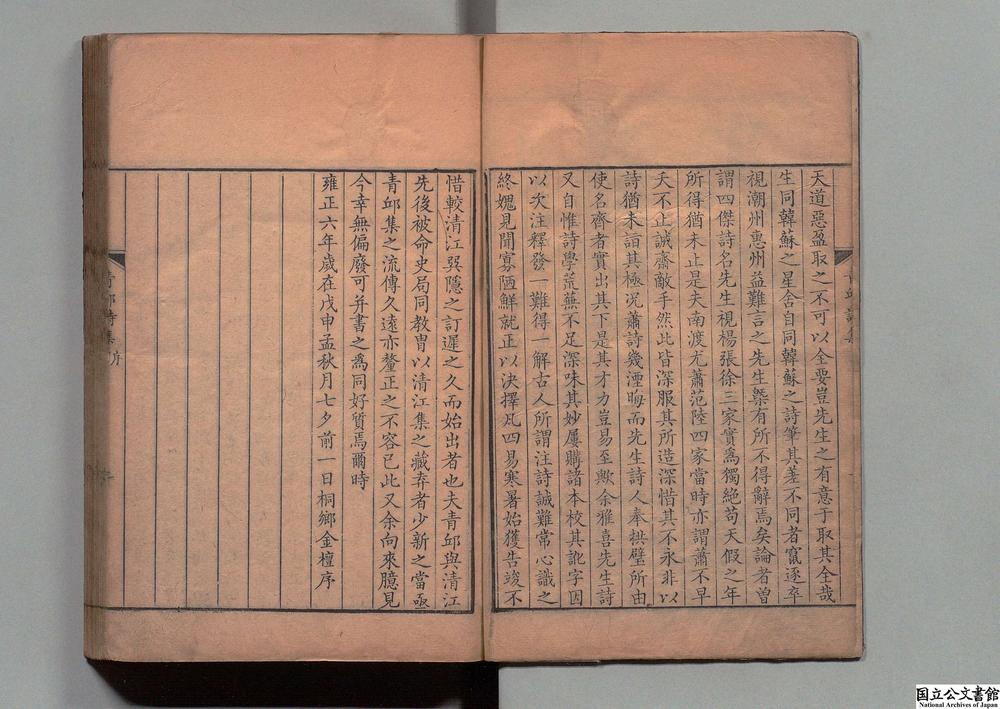 天道惡盈取之不可以全要豈先生之有意于取其全哉
生同韓蘇之星舍自同韓蘇之詩筆其差不同者竄逐卒
視潮州惠州益難言之先生槩有所不得辭焉矣論者曾
謂四傑詩名先生視楊張徐三家實爲獨絕茍天假之年
所得猶未止是夫南渡尤蕭范陸四家當時亦謂蕭不早
夭不止誠齋敵手然此皆深服其所造深惜其不永非以
詩猶未詣其極况蕭詩幾湮晦而先生詩人奉拱璧所由
使名齋者實出其下是其才力豈易至歟余雅喜先生詩
又自惟詩學荒蕪不足深味其妙屢購諸本校其訛字因
以次注釋發一難得一解古人所謂注詩誠難常心識之
終媿見聞寡陋鮮就正以決擇凡四易寒暑始獲告竣不
惜較清江巽隱之訂遲之久而始出者也夫青邱與清江
先後被命史局同教胄以清江集之藏弆者少新之當亟
青邱集之流傳久遠亦釐正之不容已此又余向來臆見
今幸無偏廢可并書之為同好質焉爾時
雍正六年歲在戊申孟秋月七夕前一日桐鄉金檀序
青邱詩集
序
国立公文書館
National Archives of Japan